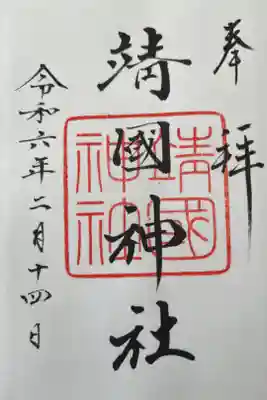 奉拝
靖國神社
靖國神社
令和六年二月十四日